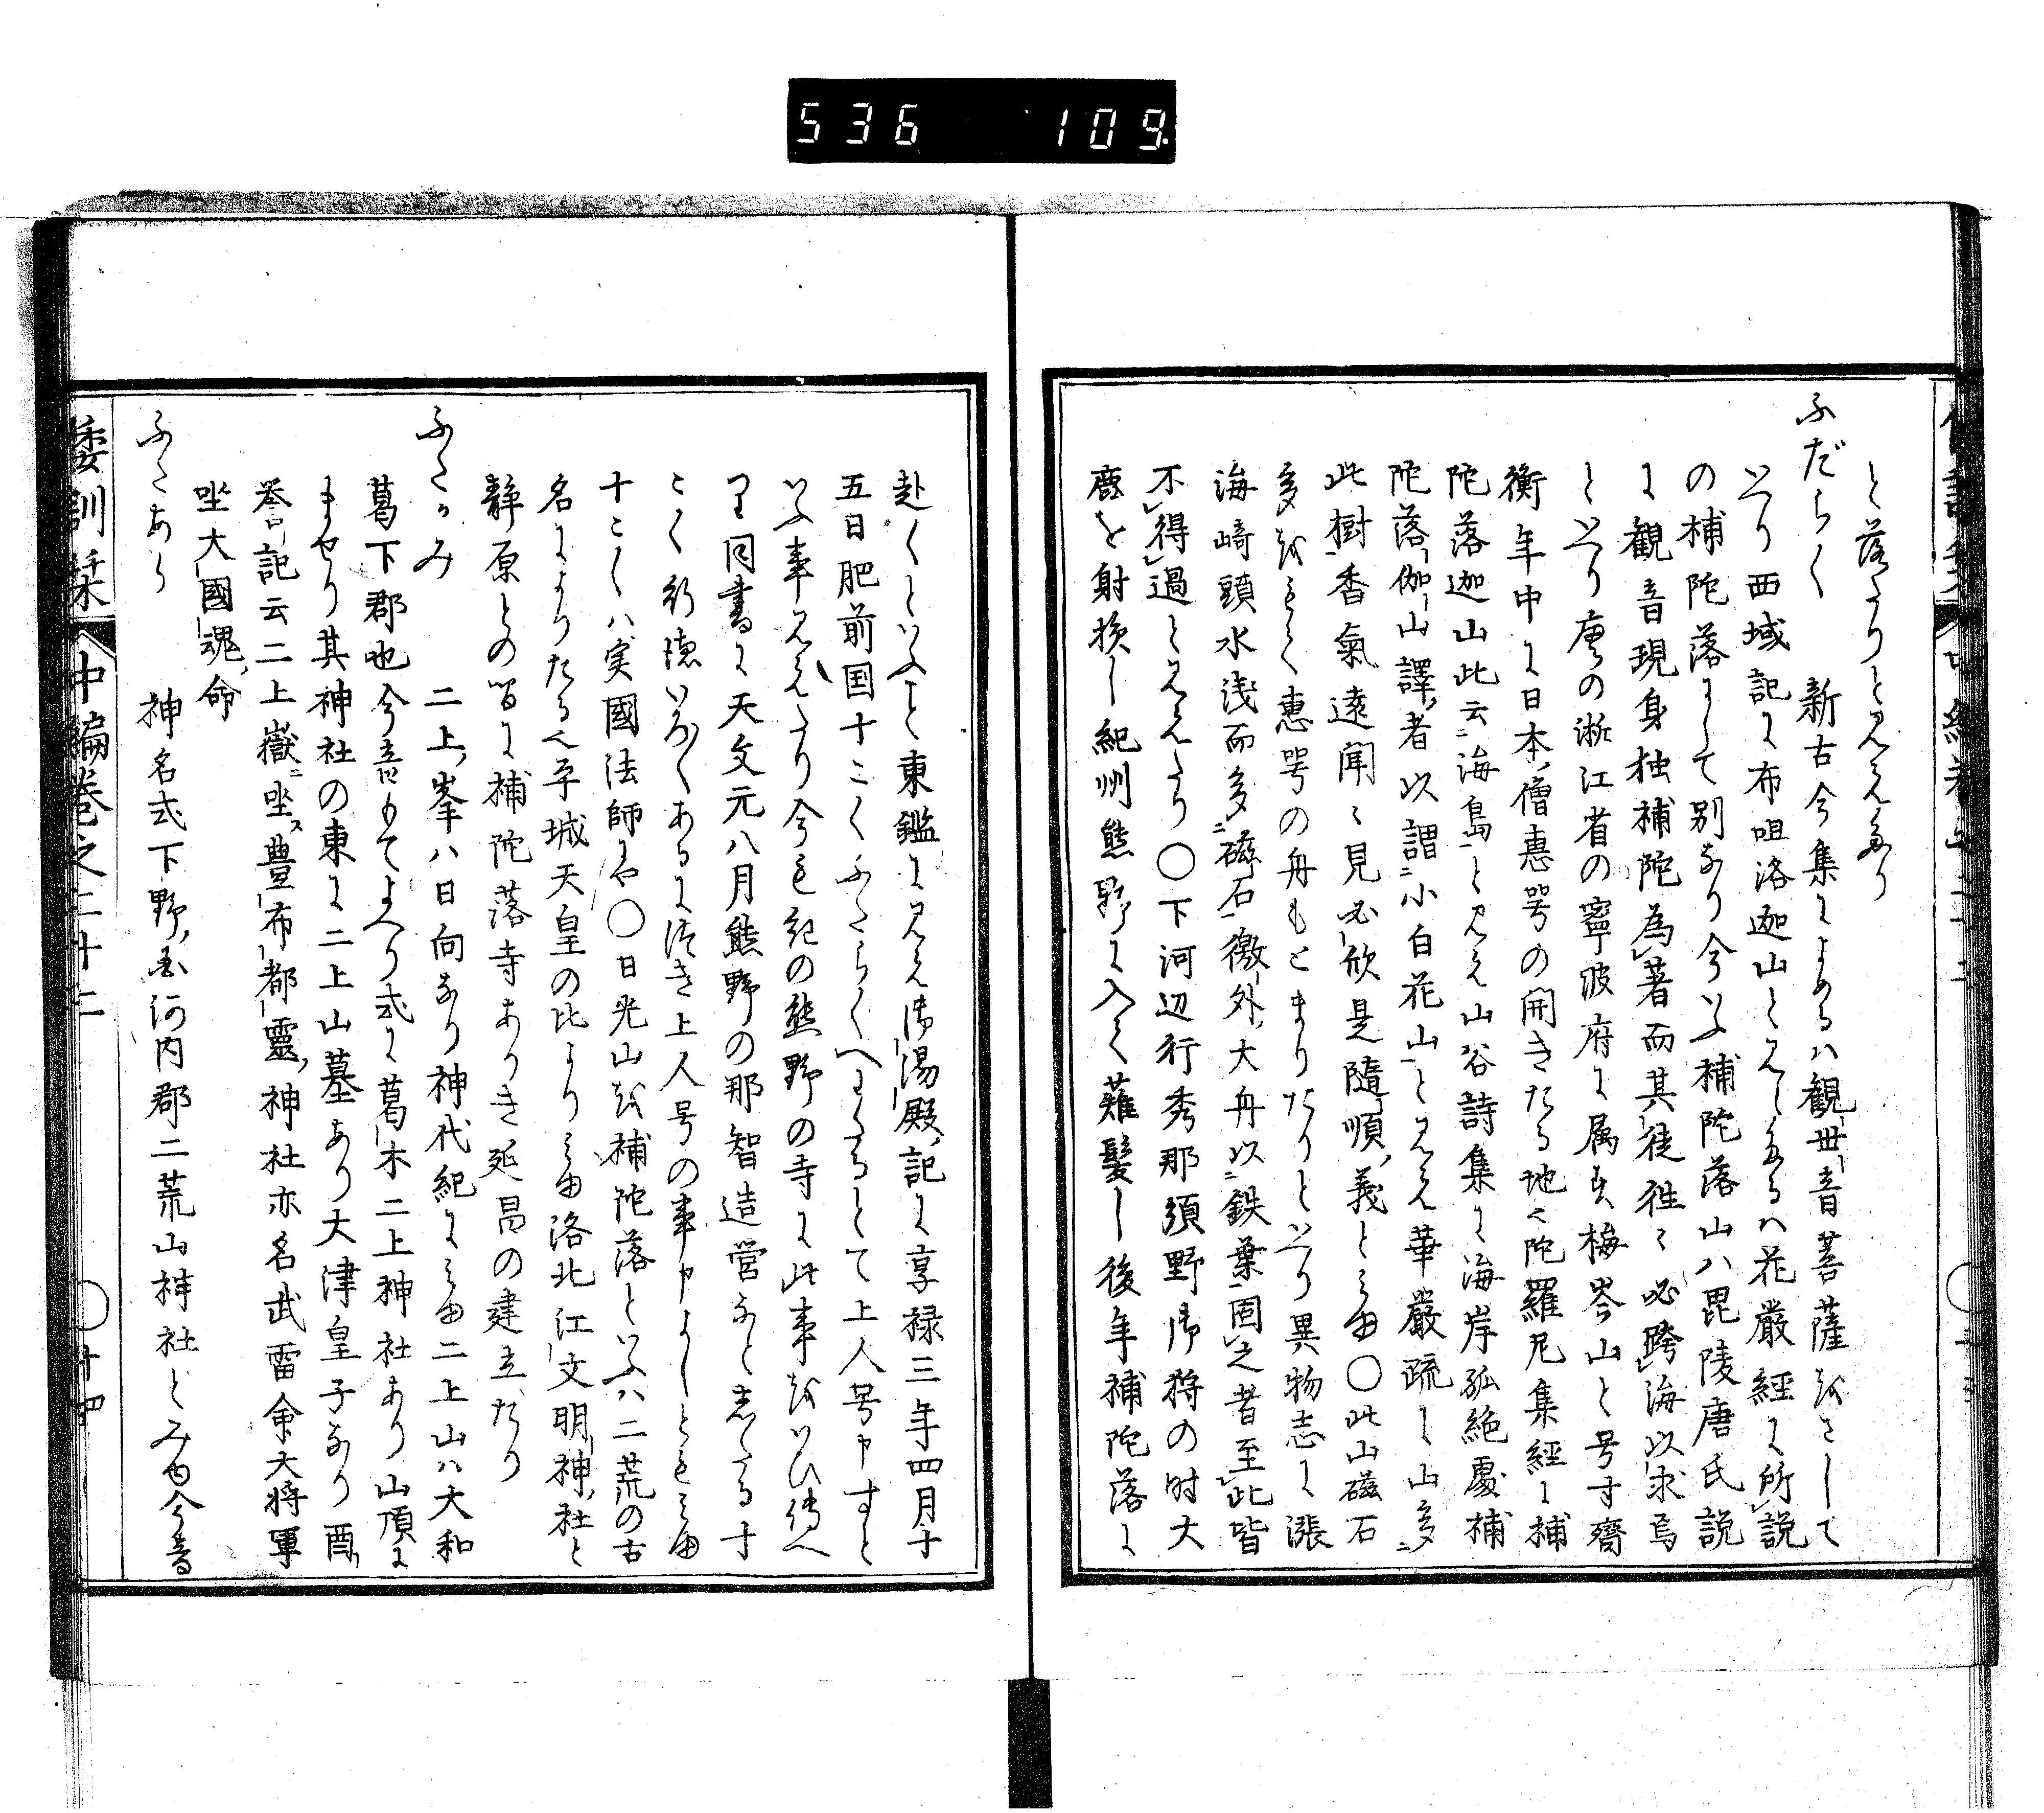 536 109
と落たりと見えたり
ふだらく 新古今集によめるハ観世音菩薩をさして
いへり西域記に布呾洛迦山とみえたるハ花厳経に所説
の補陀落にして別なり今いふ補陀落山ハ毘陵唐氏説
に観音現身独補陀為著而其徒往々必跨海以求焉
といへり唐の浙江省の寧波府に属す梅岑山と号す齊
衡年中に日本僧恵萼の開きたる地也陀羅尼集経に補
陀落迦山此云海島と見え山谷詩集に海岸孤絶處補
陀落伽山譯者以謂小白花山とみえ華嚴疏に山多
此樹香氣遠聞々見必欣是隨順義とミゆ〇此山磁石
多をもて恵萼の舟もとまりたりといへり異物志に漲
海崎頭水浅而多磁石徼外大舟以鉄葉固之者至此皆
不得過とみえたり〇下河辺行秀那須野御狩の時大
鹿を射損し紀州熊野に入て薙髪し後年補陀落に
赴くといふこと東鑑に見え御湯殿記に享禄三年四月十
五日肥前国十こくふたらくへわたるとて上人号申すと
いふ事見えたり今も紀の熊野の寺に此事をいひ傳へ
り同書に天文元八月熊野の那智造営なと志たる十
こく行徳いろ〱あるにつき上人号の事申よしともミゆ
十こくハ実國法師にや〇日光山を補陀落といふハ二荒の古
名によりたる也平城天皇の比よりミゆ洛北江文明神社と
静原との間に補陀落寺ありき延昌の建立たり
ふたかみ 二上峯ハ日向なり神代紀にミゆ二上山ハ大和
葛下郡也今音にもてよへり式に葛木二上神社あり山頂に
ませり其神社の東に二上山墓あり大津皇子なり酉
誉記云二上嶽ニ坐ス豊布都靈神社亦名武雷命大将軍
坐大國魂命
ふたあら 神名式下野国河内郡二荒山神社とみゆ今音
倭訓栞 中編巻之二十二 〇十四